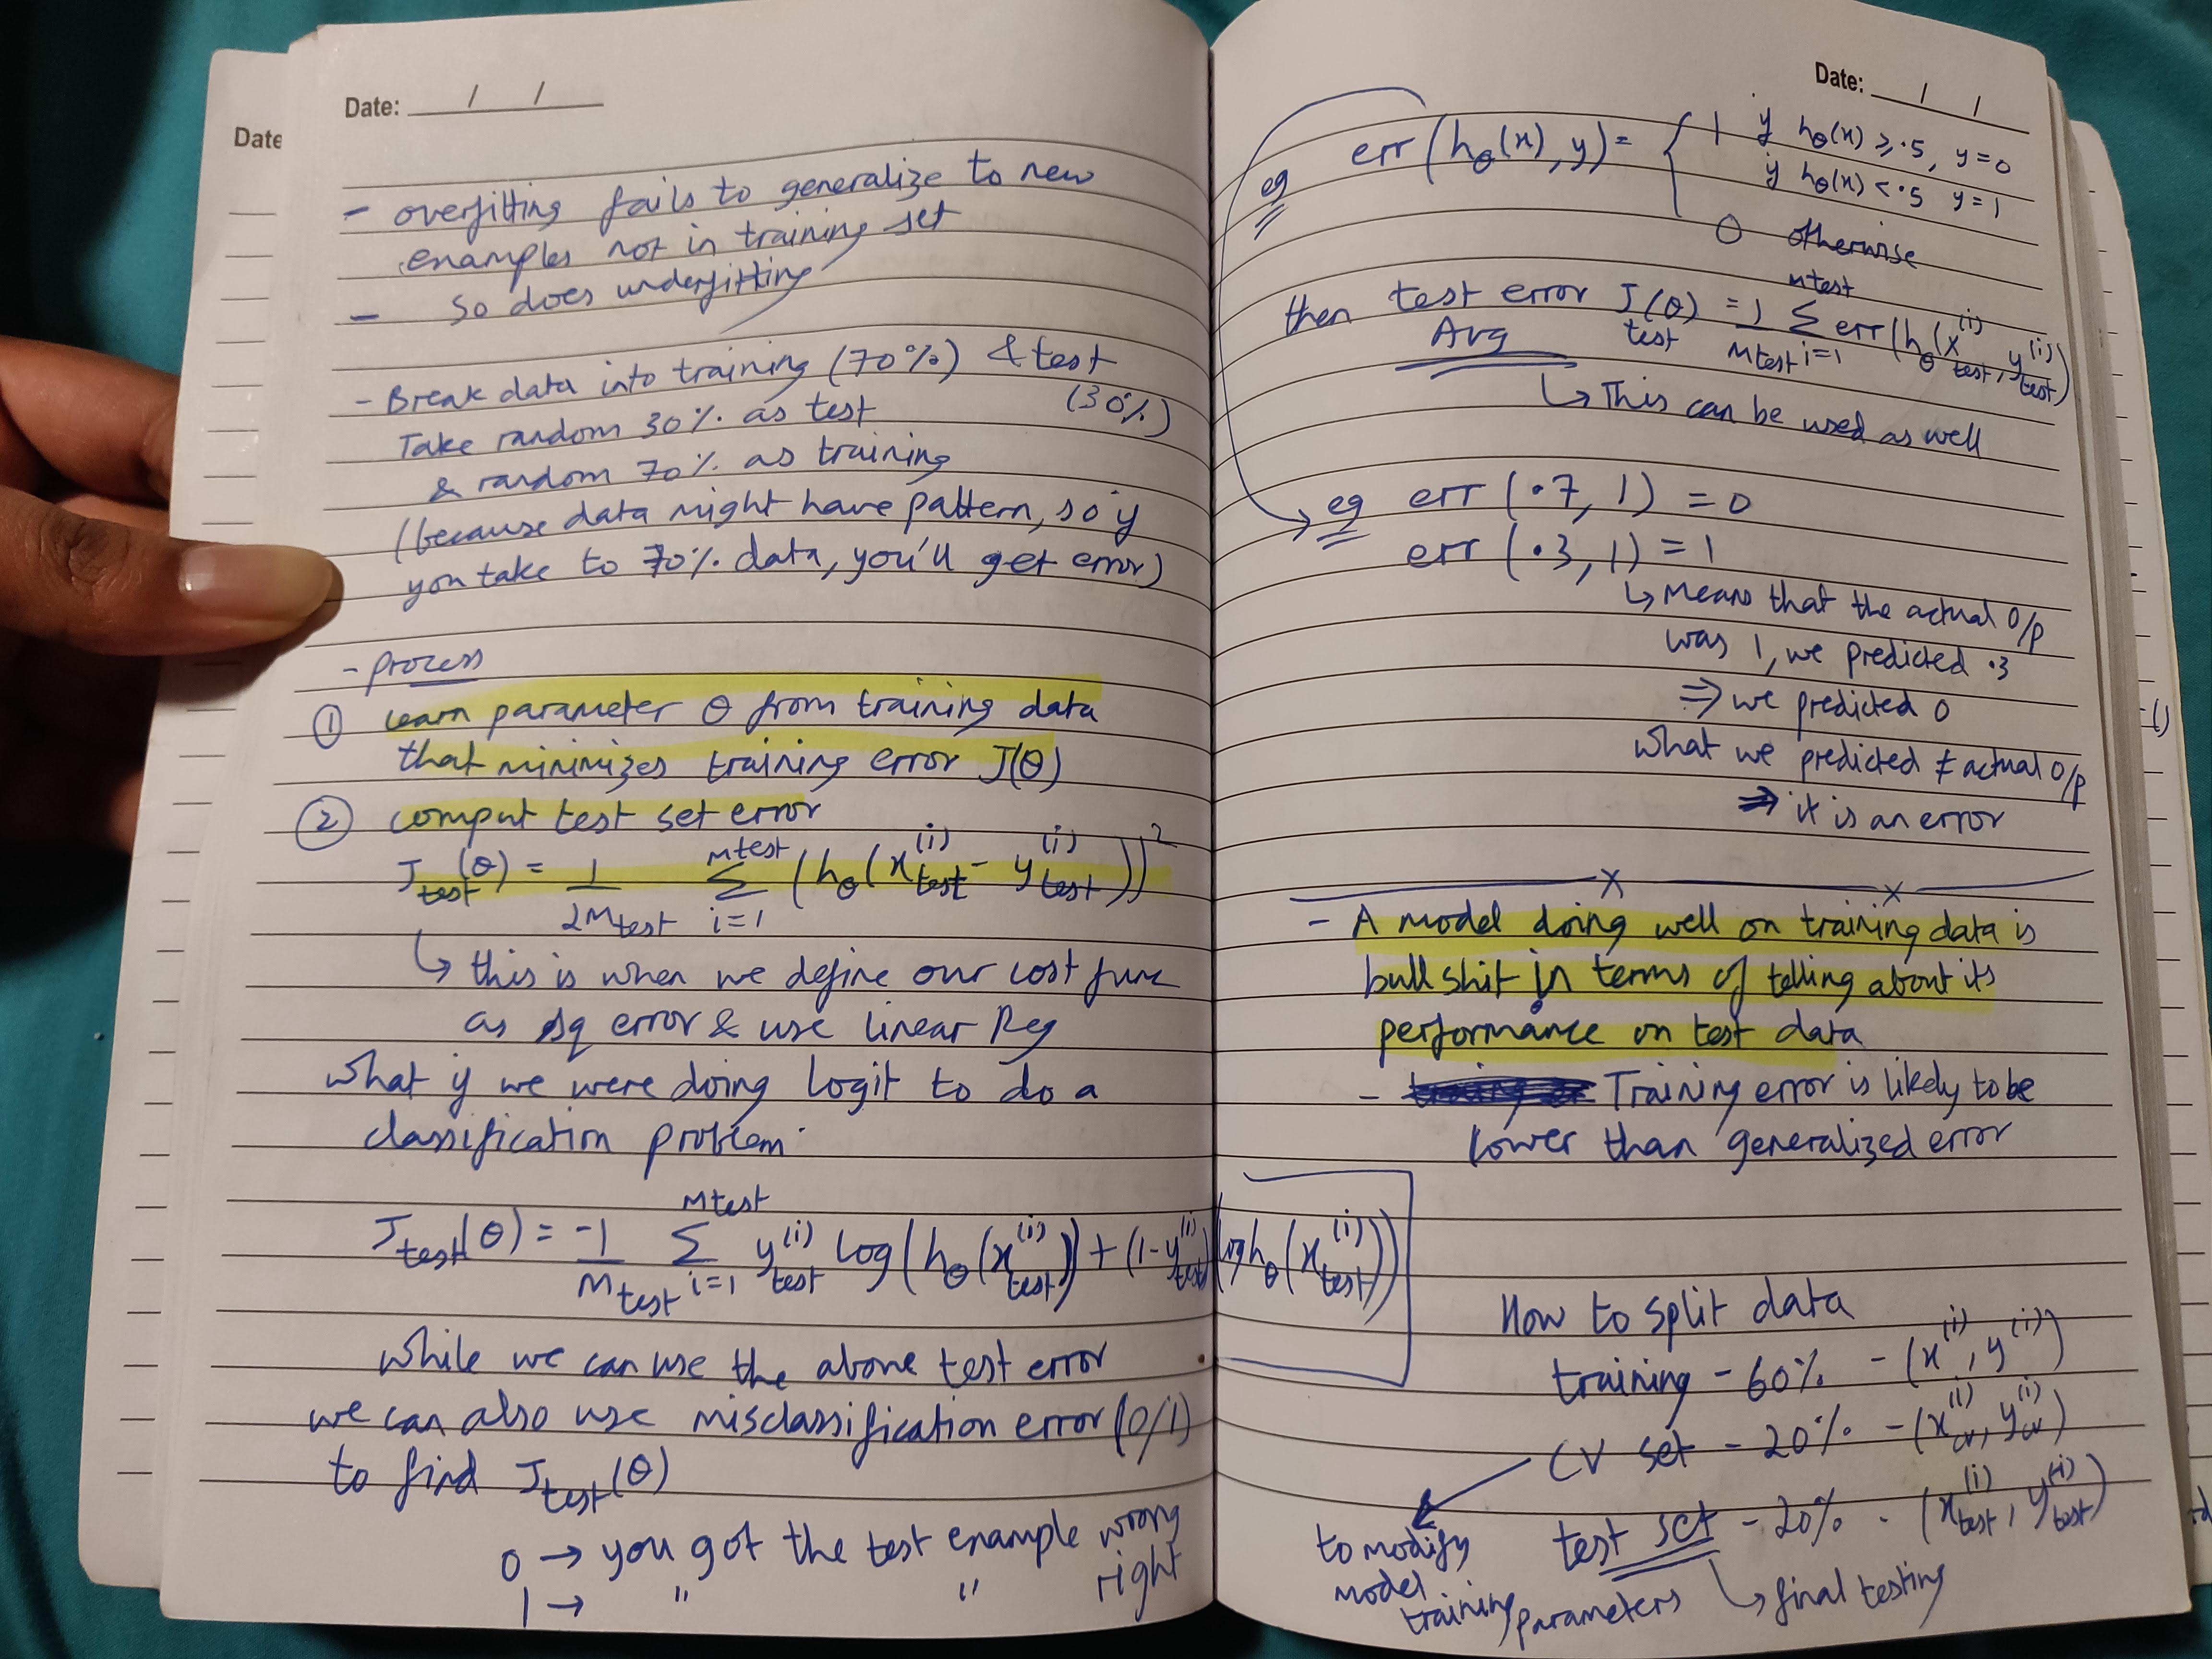 Date: / /
Date
- overfitting fails to generalize to new
examples not in training set
- so does underfitting
- Break data into training (70%) & test
(30%)
Take random 30% as test
& random 70% as training
(because data might have pattern, so if
you take to 70% data, you'll get error)
- process
① learn parameter θ from training data
that minimizes training error J(θ)
② comput test set error
J_test(θ) = 1/2m_test Σ_{i=1}^{mtest} (h_θ(x_test^(i) - y_test^(i)))²
↳ this is when we define our cost func
as sq error & use linear Reg
what if we were doing logit to do a
classification problem.
J_test(θ) = -1/m_test Σ_{i=1}^{mtest} y_test^(i) log(h_θ(x_test^(i))) + (1-y_test^(i))(log h_θ(x_test^(i)))
while we can use the above test error
we can also use misclassification error (0/1)
to find J_test(θ)
0 → you got the test example wrong
1 → " " right
Date: / /
eg err(h_θ(x), y) = { 1 if h_θ(x) ≥ .5, y = 0
if h_θ(x) < .5 y = 1
0 otherwise
then test error J_test(θ) = 1/m_test Σ_{i=1}^{mtest} err(h_θ(x_test^(i), y_test^(i))
Avg
↳ This can be used as well
eg err (.7, 1) = 0
err (.3, 1) = 1
↳ Means that the actual O/p
was 1, we predicted .3
⇒ we predicted 0
what we predicted ≠ actual O/p
⇒ it is an error
- A model doing well on training data is
bull shit in terms of telling about its
performance on test data
- Training error is likely to be
lower than generalized error
How to split data
training - 60% - (x^(i), y^(i))
CV set - 20% - (x_cv^(i), y_cv^(i))
test set - 20% - (x_test^(i), y_test^(i))
to modify
model
training parameters
↳ final testing